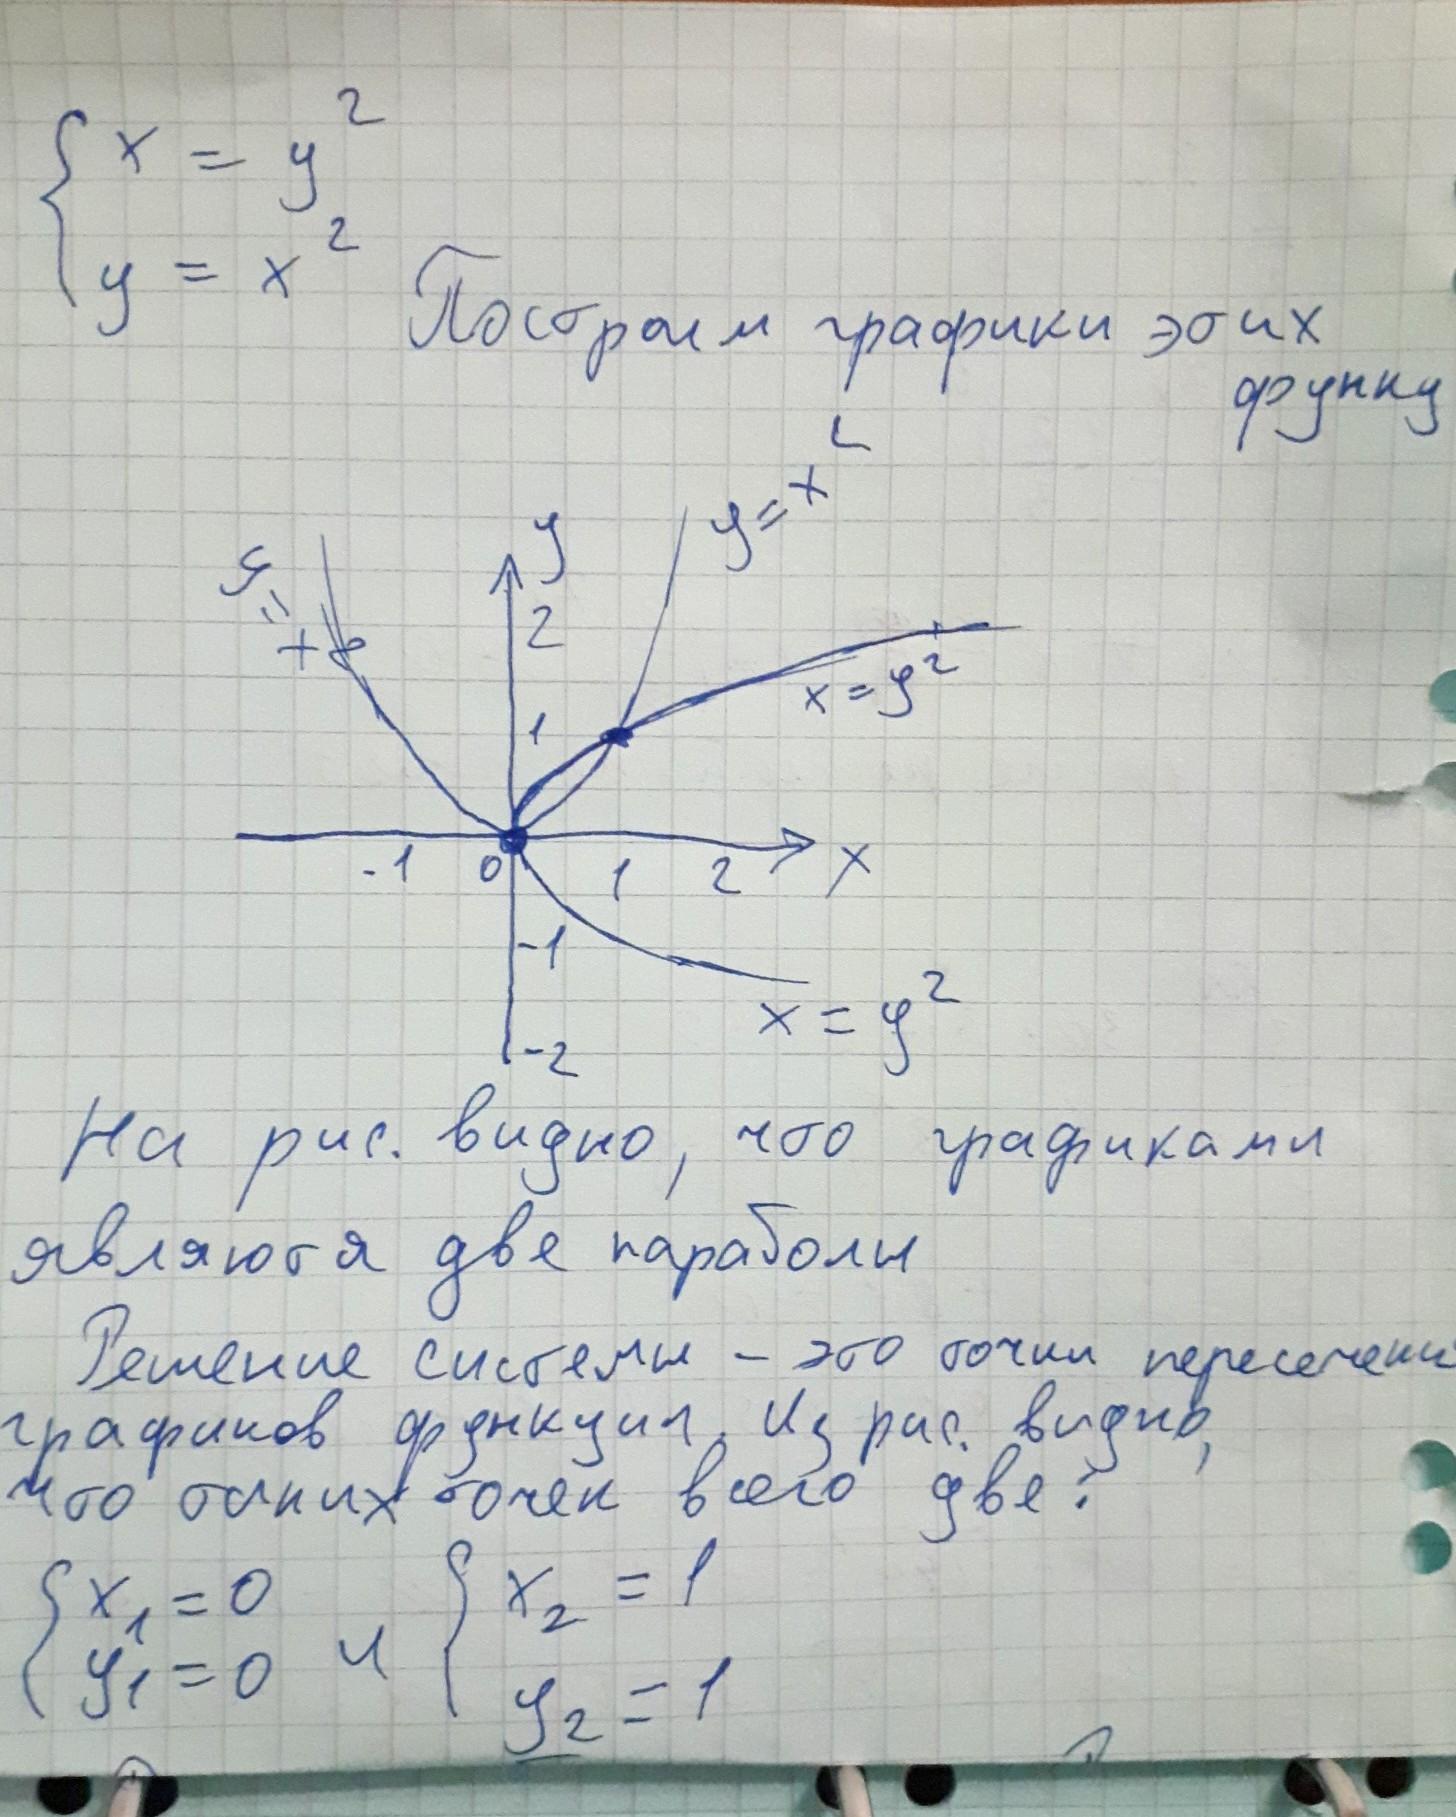 x = y²
y = x² Построим графики этих
функц
y = x²
y
y = x²
2
x = y²
1
-1 0 1 2 x
-1
x = y²
-2
На рис. видно, что графиками
являются две параболы
Решение системы – это точки пересечени
графиков функции. Из рис. видно,
что таких точек всего две:
x₁ = 0 и x₂ = 1
y₁ = 0 y₂ = 1